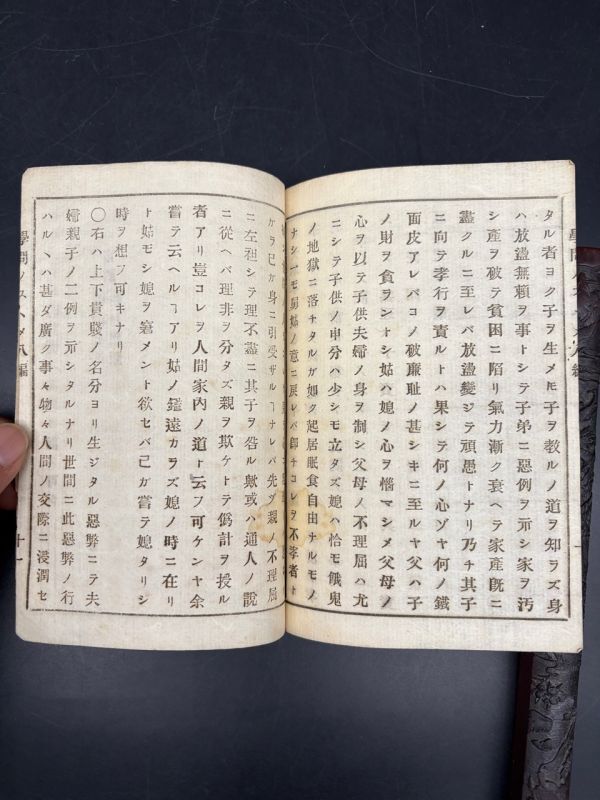 タル者ヨク子ヲ生メ𪜈子ヲ教ルノ道ヲ知ラズ身
ハ放蕩無頼ヲ事トシテ子弟ニ惡例ヲ示シ家ヲ汚
シ産ヲ破テ貧困ニ陷リ氣力漸ク衰ヘテ家産既ニ
盡クルニ至レバ放蕩變ジテ頑愚トナリ乃チ其子
ニ向テ孝行ヲ責ルトハ果シテ何ノ心ゾヤ何ノ鐵
面皮アレバコノ破廉耻ノ甚シキニ至ルヤ父ハ子
ノ財ヲ貪ラントシ姑ハ媳ノ心ヲ惱マシメ父母ノ
心ヲ以テ子供夫婦ノ身ヲ制シ父母ノ不理屈ハ尤
ニシテ子供ノ申分ハ少シモ立タズ媳ハ恰モ餓鬼
ノ地獄ニ落チタルガ如ク起居眠食自由ナルモノ
ナシ一モ舅姑ノ意ニ戻レバ即チコレヲ不孝者ト
ケラ已ガ身ニ引受ザルヿナレバ先ヅ親ノ不理屈
ニ左袒シテ理不盡ニ其子ヲ咎ル歟或ハ通人ノ説
ニ從ヘバ理非ヲ分タズ親ヲ欺ケトテ僞計ヲ授ル
者アリ豈コレヲ人間家内ノ道ト云フ可ケンヤ余
甞テ云ヘルヿアリ姑ノ鑑遠カラズ媳ノ時ニ在リ
ト姑モシ媳ヲ窘メント欲セバ己ガ甞テ媳タリシ
時ヲ想フ可キナリ
〇右ハ上下貴賤ノ名分ヨリ生ジタル惡弊ニテ夫
婦親子ノ二例ヲ示シタルナリ世間ニ此惡弊ノ行
ハルヽハ甚ダ廣ク事々物々人間ノ交際ニ浸潤セ
學問ノスヽメ八編
十一